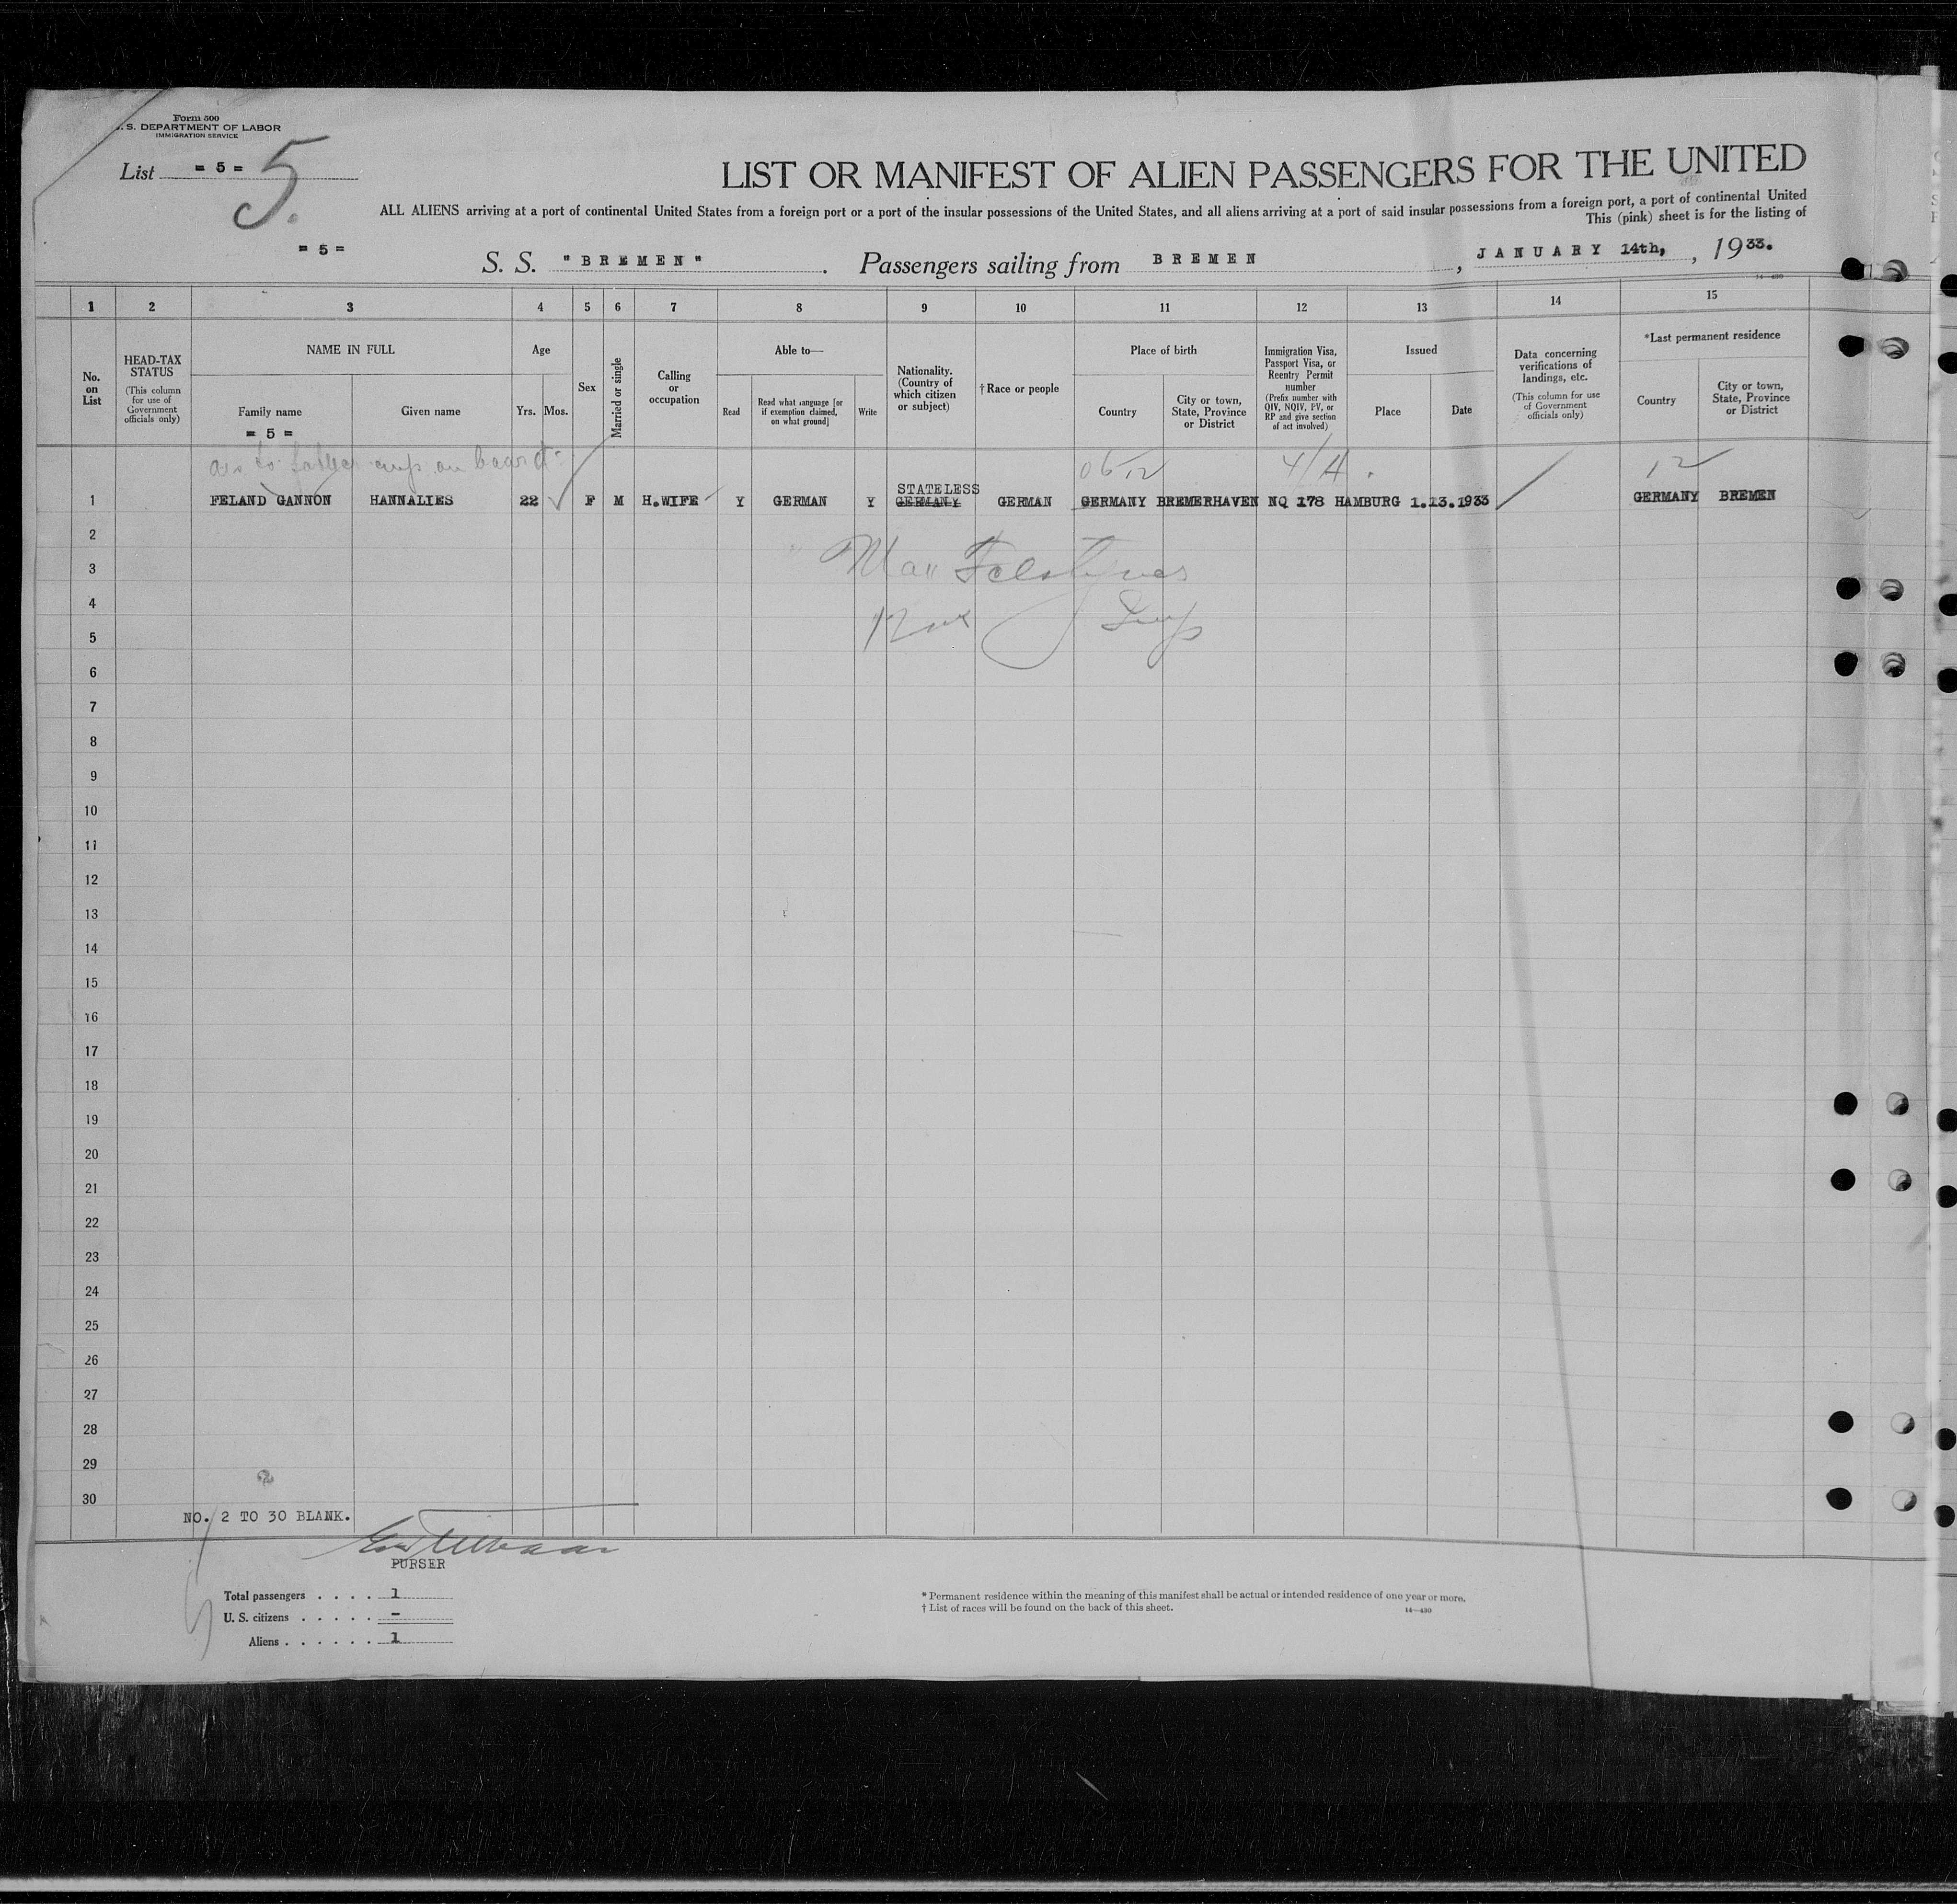 Form 500
U. S. DEPARTMENT OF LABOR
IMMIGRATION SERVICE
List = 5 = 5.
LIST OR MANIFEST OF ALIEN PASSENGERS FOR THE UNITED
ALL ALIENS arriving at a port of continental United States from a foreign port or a port of the insular possessions of the United States, and all aliens arriving at a port of said insular possessions from a foreign port, a port of continental United
This (pink) sheet is for the listing of
= 5 =
S. S. "BREMEN". Passengers sailing from BREMEN, JANUARY 14th, , 1933.
14—430
1 2 3 4 5 6 7 8 9 10 11 12 13 14 15
No. on List
HEAD-TAX STATUS
(This column for use of Government officials only)
NAME IN FULL
Family name
Given name
= 5 =
Age
Yrs. Mos.
Sex
Married or single
Calling or occupation
Able to—
Read
Read what language [or if exemption claimed, on what ground]
Write
Nationality. (Country of which citizen or subject)
†Race or people
Place of birth
Country
City or town, State, Province or District
Immigration Visa, Passport Visa, or Reentry Permit number
(Prefix number with QIV, NQIV, PV, or RP and give section of act involved)
Issued
Place
Date
Data concerning verifications of landings, etc.
(This column for use of Government officials only)
*Last permanent residence
Country
City or town, State, Province or District
on board
12
STATELESS
1 FELAND GANNON HANNALIES 22 F M H.WIFE Y GERMAN Y GERMANY GERMAN GERMANY BREMERHAVEN NQ 178 HAMBURG 1.13.1933 GERMANY BREMEN
2
3
4
5
Insp
6
7
8
9
10
11
12
13
14
15
16
17
18
19
20
21
22
23
24
25
26
27
28
29
30
NO. 2 TO 30 BLANK.
PURSER
Total passengers . . . . 1
U. S. citizens . . . . . -
Aliens . . . . . . 1
* Permanent residence within the meaning of this manifest shall be actual or intended residence of one year or more.
† List of races will be found on the back of this sheet.
14—430